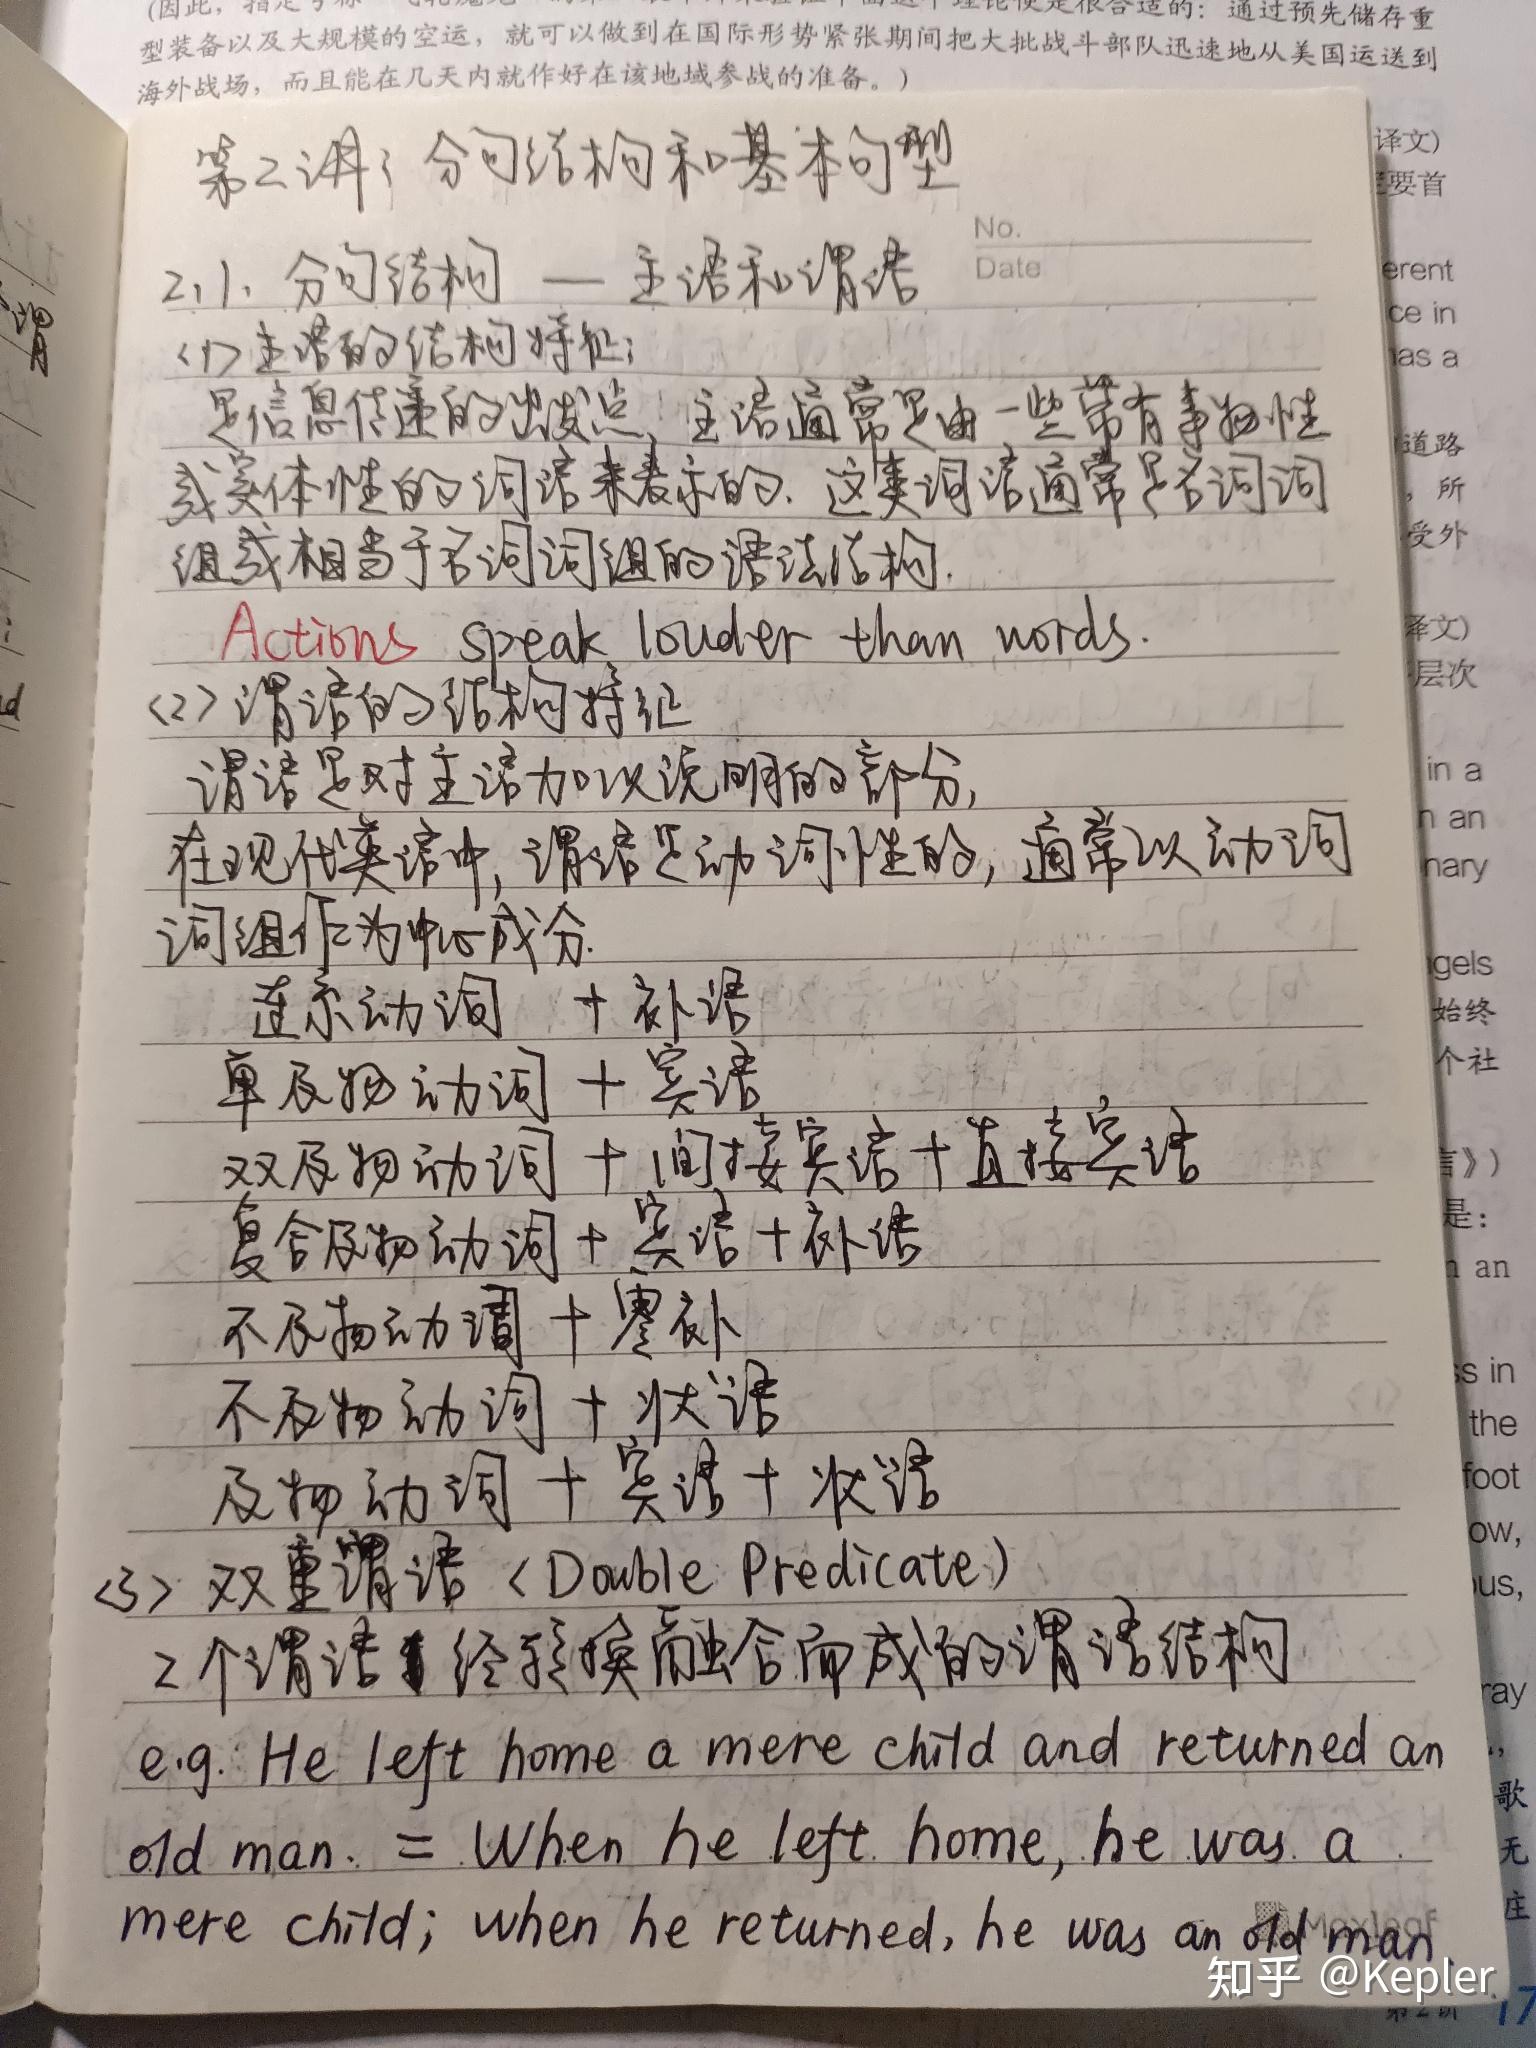 型装备以及大规模的空运，就可以做到在国际形势紧张期间把大批战斗部队迅速地从美国运送到
海外战场，而且能在几天内就作好在该地域参战的准备。）
第2讲：分句结构和基本句型
No.
Date
2.1. 分句结构 — 主语和谓语
<1> 主语的结构特征：
是信息传递的出发点，主语通常是由一些带有事物性
或实体性的词语来表示的. 这类词语通常是名词词
组或相当于名词词组的语法结构.
Actions speak louder than words.
<2> 谓语的结构特征
谓语是对主语加以说明的部分,
在现代英语中, 谓语是动词性的, 通常以动词
词组作为中心成分.
连系动词 + 补语
单及物动词 + 宾语
双及物动词 + 间接宾语 + 直接宾语
复合及物动词 + 宾语 + 补语
不及物动词 + 零补
不及物动词 + 状语
及物动词 + 宾语 + 状语
<3> 双重谓语 (Double Predicate)
2个谓语经转换融合而成的谓语结构
e.g. He left home a mere child and returned an
old man. = When he left home, he was a
mere child; when he returned, he was an old man.
译文)
要首
erent
ce in
has a
道路
，所
受外
译文)
层次
in a
n an
nary
ngels
始终
个社
言》)
是：
n an
ss in
the
foot
ow,
ous,
ray
歌
无
庄
谓
Maxleaf
知乎 @Kepler
第2讲 17